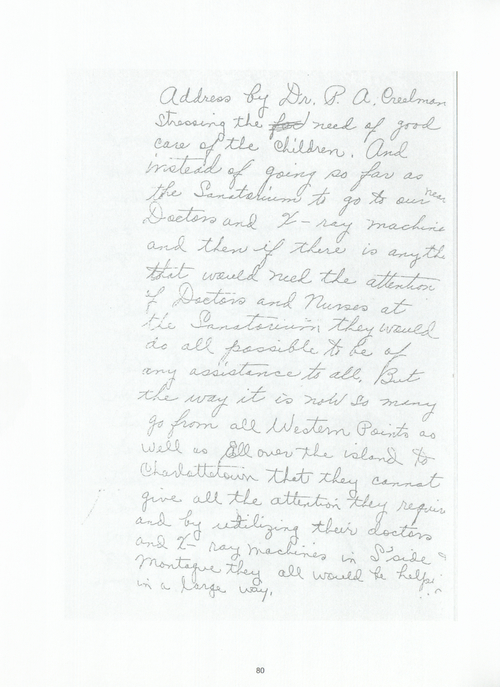 Address by Dr. P. A. Creelman
stressing the need of good
care of the children. And
instead of going so far as
the Sanatorium to go to our near
Doctors and X-ray machine
and then if there is anythi
that would need the attention
of Doctors and Nurses at
the Sanatorium they would
do all possible to be of
any assistance to all. But
the way it is now so many
go from all Western Points as
well as all over the island to
Charlottetown that they cannot
give all the attention they require
and by utilizing their doctors
and X-ray machines in S'side
Montague they all would be help
in a large way.
80